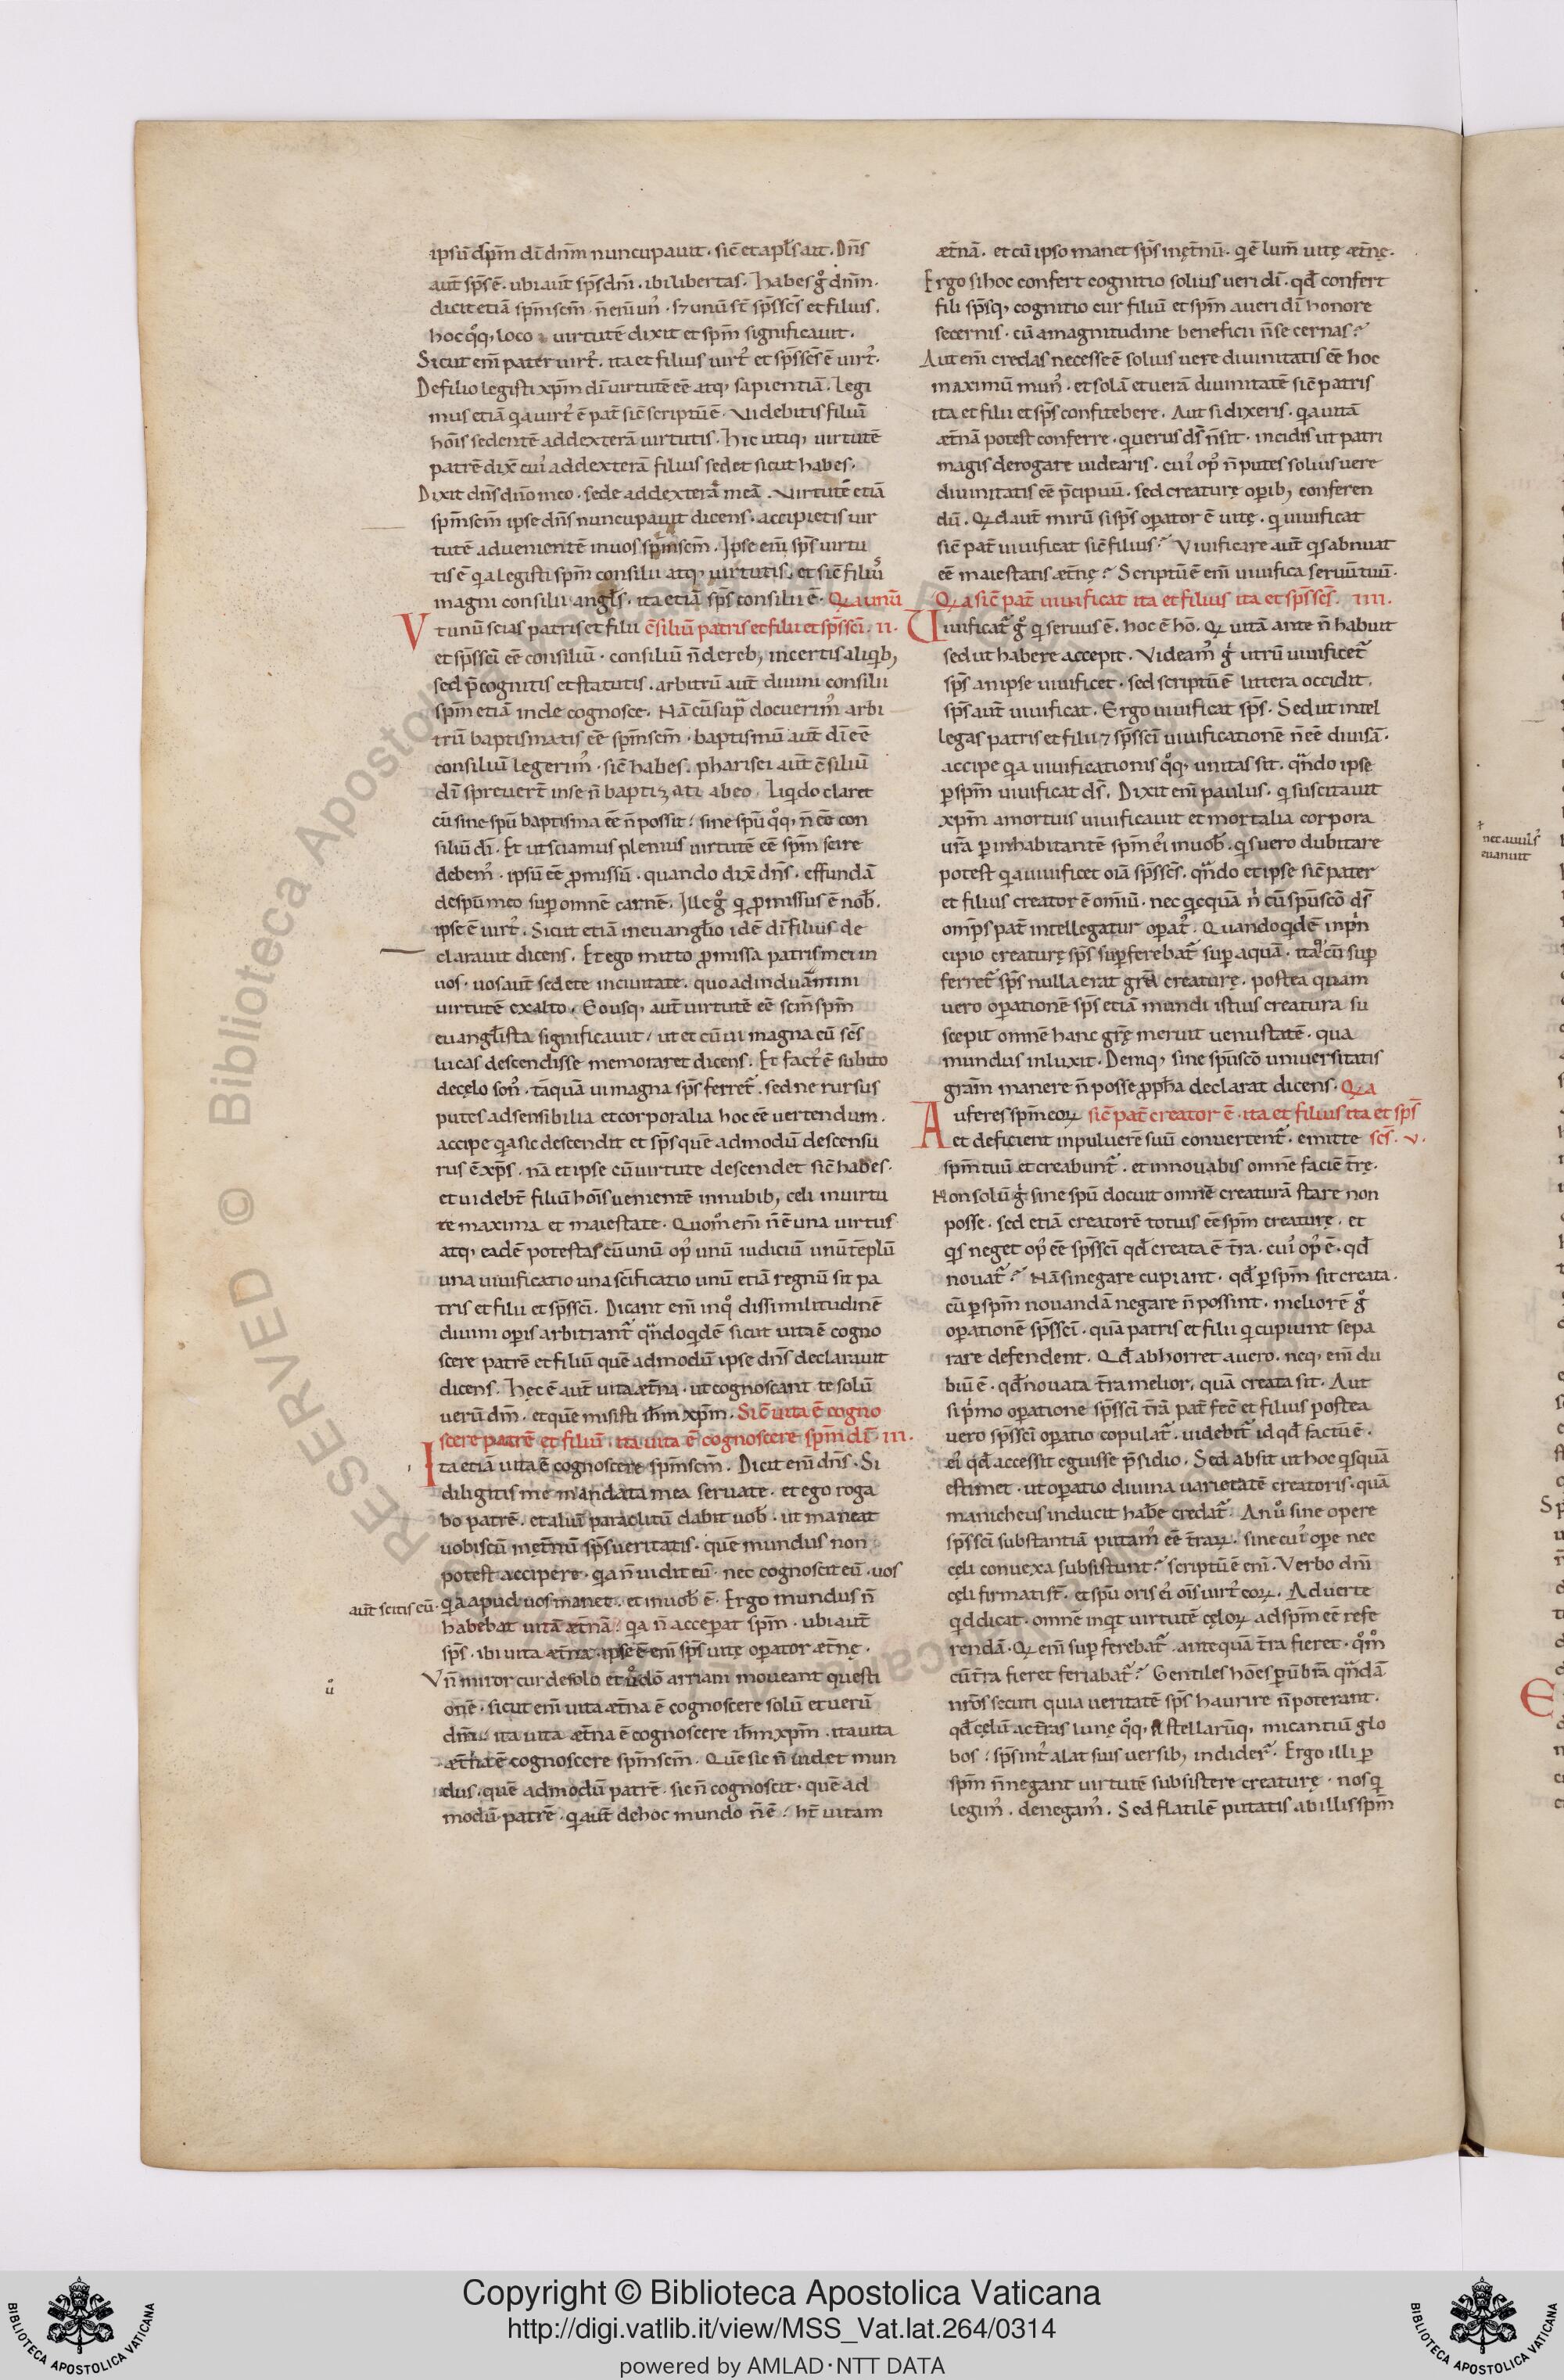 ipsū dp̄m dī dn̄m nuncupauit. sic̄ et apl̄s ait. Dn̄s
aut̄ sp̄s ē. ubi aut̄ sp̄s dn̄i. ibi libertas. Habes gͦ dn̄m.
dicit etiā sp̄m sc̄m. n̄ eni unꝰ. sꝫ unū st̄ sp̄s sc̄s et filius.
hoc qͦq, loco uirtutē dixit et sp̄m significauit.
Sicut em̄ pater uirtꝰ. ita et filius uirtꝰ et sp̄s sc̄s ē uirtꝰ.
De filio legisti xp̄m dī uirtutē eē atq, sapientiā. Legi
mus etiā q̄a uirtꝰ ē pat̄ sic̄ scriptū ē. Videbitis filiū
hōis sedentē ad dexterā uirtutis. Hic utiq, uirtutē
patrē dix̄ cuiꝰ ad dexterā filius sedet sicut habes.
Dixit dn̄s dn̄o meo. sede ad dexterā meā. Virtutē etiā
sp̄m sc̄m ipse dn̄s nuncupauit dicens. accipietis uir
tutē aduenientē in uos sp̄m sc̄m. Ipse em̄ sp̄s uirtu
tis ē q̄a legisti sp̄m consilii atq, uirtutis. et sic̄ filiuˢ
magni consilii angl̄s. ita etiā sp̄s consilii ē. Qꝛ a unū
Vt unū scias patris et filii c̄siliū patris et filii et sp̄s sc̄i. II.
et sp̄s sc̄i eē consiliū. consiliū n̄ de reb, incertis aliqib,
sed p̄cognitis et statutis. arbitrū aut̄ diuini consilii
sp̄m etiā inde cognosce. Nā cū sup̄ docuerimꝰ arbi
triū baptismatis eē sp̄m sc̄m. baptismū aut̄ dī eē
consiliū legerimꝰ. sic̄ habes. pharisei aut̄ c̄siliū
dī spreuert̄ in se n̄ baptizati ab eo. Liqido claret
cū sine sp̄u baptisma eē n̄ possit: sine sp̄u qͦq, n̄ eē con
siliū dī. Et ut sciamus plenius uirtutē eē sp̄m scire
debemꝰ. ipsū eē p̄missū. quando dix̄ dn̄s. effundā
de sp̄u meo sup̄ omnē carnē. Ille gͦ qi p̄missus ē nob̄.
ipse ē uirtꝰ. Sicut etiā in euangl̄io idē dī filius de
clarauit dicens. Et ego mitto p̄missa patris mei in
uos. uos aut̄ sedete in ciuitate. quoad induāmini
uirtutē ex alto. Eousq, aut̄ uirtutē eē sc̄m sp̄m
euangl̄ista significauit, ut et cū ui magna eū sc̄s
lucas descendisse memoraret dicens. Et factꝰ ē subito
de cęlo sonꝰ. tāquā ui magna sp̄s ferret᷑. sed ne rursus
putes ad sensibilia et corporalia hoc eē uertendum.
accipe q̄a sic descendit et sp̄s quē admodū descensu
rus ē xp̄s. nā et ipse cū uirtute descendet sic̄ habes.
et uidebt̄ filiū hōis uenientē in nubib, celi in uirtu
te maxima et maiestate. Quomͦ em̄ n̄ ē una uirtus
atq, eadē potestas cū unū opꝰ unū iudiciū unū tēplū
una uiuificatio una sc̄ificatio unū etiā regnū sit pa
tris et filii et sp̄s sc̄i. Dicant em̄ in qͦ dissimilitudinē
diuini op̄is arbitrant᷑ qn̄doqidē sicut uita ē cogno
scere patrē et filiū quē admodū ipse dn̄s declarauit
dicens. Hęc ē aut̄ uita æt̄na. ut cognoscant te solū
uerū dm̄. et quē misisti ih̄m xp̄m. Sic̄ uita ē cogno
scere patrē et filiū. ita uita ē cognoscere sp̄m dī. III.
Ita etiā uita ē cognoscere sp̄m sc̄m. Dicit em̄ dn̄s. Si
diligitis me mandata mea seruate. et ego roga
bo patrē. et aliū paraclitū dabit uob̄. ut maneat
uobiscū in ęt̄nū sp̄s ueritatis. quē mundus non
potest accipere. q̄a n̄ uidit eū. nec cognoscit eū. uos
aut̄ scitis eū. q̄a apud uos manet. et in uob̄ ē. Ergo mundus n̄
habebat uitā æt̄nā. q̄a n̄ acceperat sp̄m. ubi aut̄
sp̄s. ibi uita æt̄na. ipse ē em̄ sp̄s uitę op̄ator æt̄nę.
Vn̄ miror cur de solo et uͦ dō arriani moueant quęsti
onē. sicut em̄ uita æt̄na ē cognoscere solū et uerū
dm̄. ita uita æt̄na ē cognoscere ih̄m xp̄m. ita uita
æt̄na ē cognoscere sp̄m sc̄m. Quē sic n̄ uidet mun
dus. quē admodū patrē. sic n̄ cognoscit. quē ad
modū patrē. qi aut̄ de hoc mundo n̄ ē. ht̄ uitam
æt̄nā. et cū ipso manet sp̄s in ęt̄nū. qi ē lum̄ uitę æt̄nę.
Ergo si hoc confert cognitio solius ueri dī. qd̄ confert
fili sp̄sq, cognitio cur filiū et sp̄m a ueri dī honore
secernis. cū a magnitudine beneficii n̄ secernas?
Aut em̄ credas necesse ē solius uere diuinitatis eē hoc
maximū munꝰ. et solā et uerā diuinitatē sic̄ patris
ita et filii et sp̄s confitebere. Aut si dixeris. q̄a uitā
æt̄nā potest conferre. qi uerus ds̄ n̄ sit. incidis ut patri
magis derogare uidearis. cuiꝰ opꝰ n̄ putes solius uere
diuinitatis eē p̄cipuū. sed creaturę op̄ib, conferen
dū. Qd aut̄ mirū si sp̄s op̄ator ē uitę. qi uiuificat
sic̄ pat̄ uiuificat sic̄ filius? Viuificare aut̄ qis abnuat
eē maiestatis æt̄nę? Scriptū ē em̄ uiuifica seruū tuū.
Qꝛ a sic̄ pat̄ uiuificat ita et filius ita et sp̄s sc̄s. IIII.
Viuificat᷑ gͦ qi seruus ē. hoc ē hō. Qi uitā ante n̄ habuit
sed ut habere accepit. Videamꝰ gͦ utrū uiuificet᷑
sp̄s an ipse uiuificet. sed scriptū ē littera occidit.
sp̄s aut̄ uiuificat. Ergo uiuificat sp̄s. Sed ut intel
legas patris et filii ⁊ sp̄s sc̄i uiuificationē n̄ eē diuisā.
accipe q̄a uiuificationis qͦq, unitas sit. qn̄do ipse
p̄ sp̄m uiuificat ds̄. Dixit em̄ paulus. qi suscitauit
xp̄m a mortuis uiuificauit et mortalia corpora
ur̄a p̄ inhabitantē sp̄m eiꝰ in uob̄. qis uero dubitare
potest q̄a uiuificet oīa sp̄s sc̄s. qn̄do et ipse sic̄ pater
et filius creator ē om̄iū. nec qicquā ni cū sp̄u sc̄o ds̄
omp̄s pat̄ intellegatur op̄atꝰ. Quandoqidē in pͥn
cipio creaturę sp̄s sup̄ferebat᷑ sup̄ aquā. itaqͦ cū sup̄
ferret᷑ sp̄s nulla erat gr̄a creaturę. postea quam
uero op̄ationē sp̄s etiā mundi istius creatura su
scepit omnē hanc gr̄ę meruit uenustatē. qua
mundus inluxit. Deniq, sine sp̄u sc̄o uniuersitatis
gram̄ manere n̄ posse p̄ph̄a declarat dicens. Qꝛ a
Auferes sp̄m eoꝝ sic̄ pat̄ creator ē. ita et filius ita et sp̄s
et deficient in puluerē suū conuertent᷑. emitte sc̄s. V.
sp̄m tuū et creabunt᷑. et innouabis omnē faciē t̄rę.
Non solū gͦ sine sp̄u docuit omnē creaturā stare non
posse. sed etiā creatorē totius eē sp̄m creaturę. et
qis neget opꝰ eē sp̄s sc̄i qd̄ creata ē t̄ra. cuiꝰ opꝰ ē. qd̄
nouat᷑? Nā si negare cupiant. qd̄ p̄ sp̄m sit creata.
cū p̄ sp̄m nouandā negare n̄ possint. meliorē gͦ
op̄ationē sp̄s sc̄i. quā patris et filii qi cupiunt sepa
rare defendent. Qd̄ abhorret a uero. neq, em̄ du
biū ē. qd̄ nouata t̄ra melior, quā creata sit. Aut
si pͥmo op̄atione sp̄s sc̄i t̄rā pat̄ fec̄ et filius postea
uero sp̄s sc̄i op̄atio copulat᷑. uidebit᷑ id qd̄ factū ē.
eiꝰ qd̄ accessit eguisse p̄sidio. Sed absit ut hoc qisquā
estimet. ut op̄atio diuina uarietatē creatoris. quā
manicheus inducit hab̄e credat᷑. An uͦ sine opere
sp̄s sc̄i substantiā putamꝰ eē t̄raꝝ. sine cuiꝰ op̄e nec
cęli conuexa subsistunt? scriptū ē em̄. Verbo dn̄i
cęli firmati st̄. et sp̄u oris eiꝰ oīs uirtꝰ eoꝝ. Aduerte
qid dicat. omnē inqit uirtutē cęloꝝ ad sp̄m eē refe
rendā. Qi em̄ sup̄ ferebat᷑. antequā t̄ra fieret. qͦmͦ
cū t̄ra fieret feriabat᷑? Gentiles hōes p̄ ūbrā qn̄dā
nr̄os secuti quia ueritatē sp̄s haurire n̄ poterant.
qd̄ cęlū ac t̄ras lunę qͦq, stellarūq, micantiū glo
bos: sp̄s intꝰ alat suis uersib, indider᷑. Ergo illi p̄
sp̄m n̄ negant uirtutē subsistere creaturę. nos qi
legimꝰ. denegamꝰ. Sed flatilē putatis ab illis sp̄m
nec auulsꝰ
euanuit
Copyright © Biblioteca Apostolica Vaticana
http://digi.vatlib.it/view/MSS_Vat.lat.264/0314
powered by AMLAD·NTT DATA
BIBLIOTECA APOSTOLICA VATICANA
BIBLIOTECA APOSTOLICA VATICANA